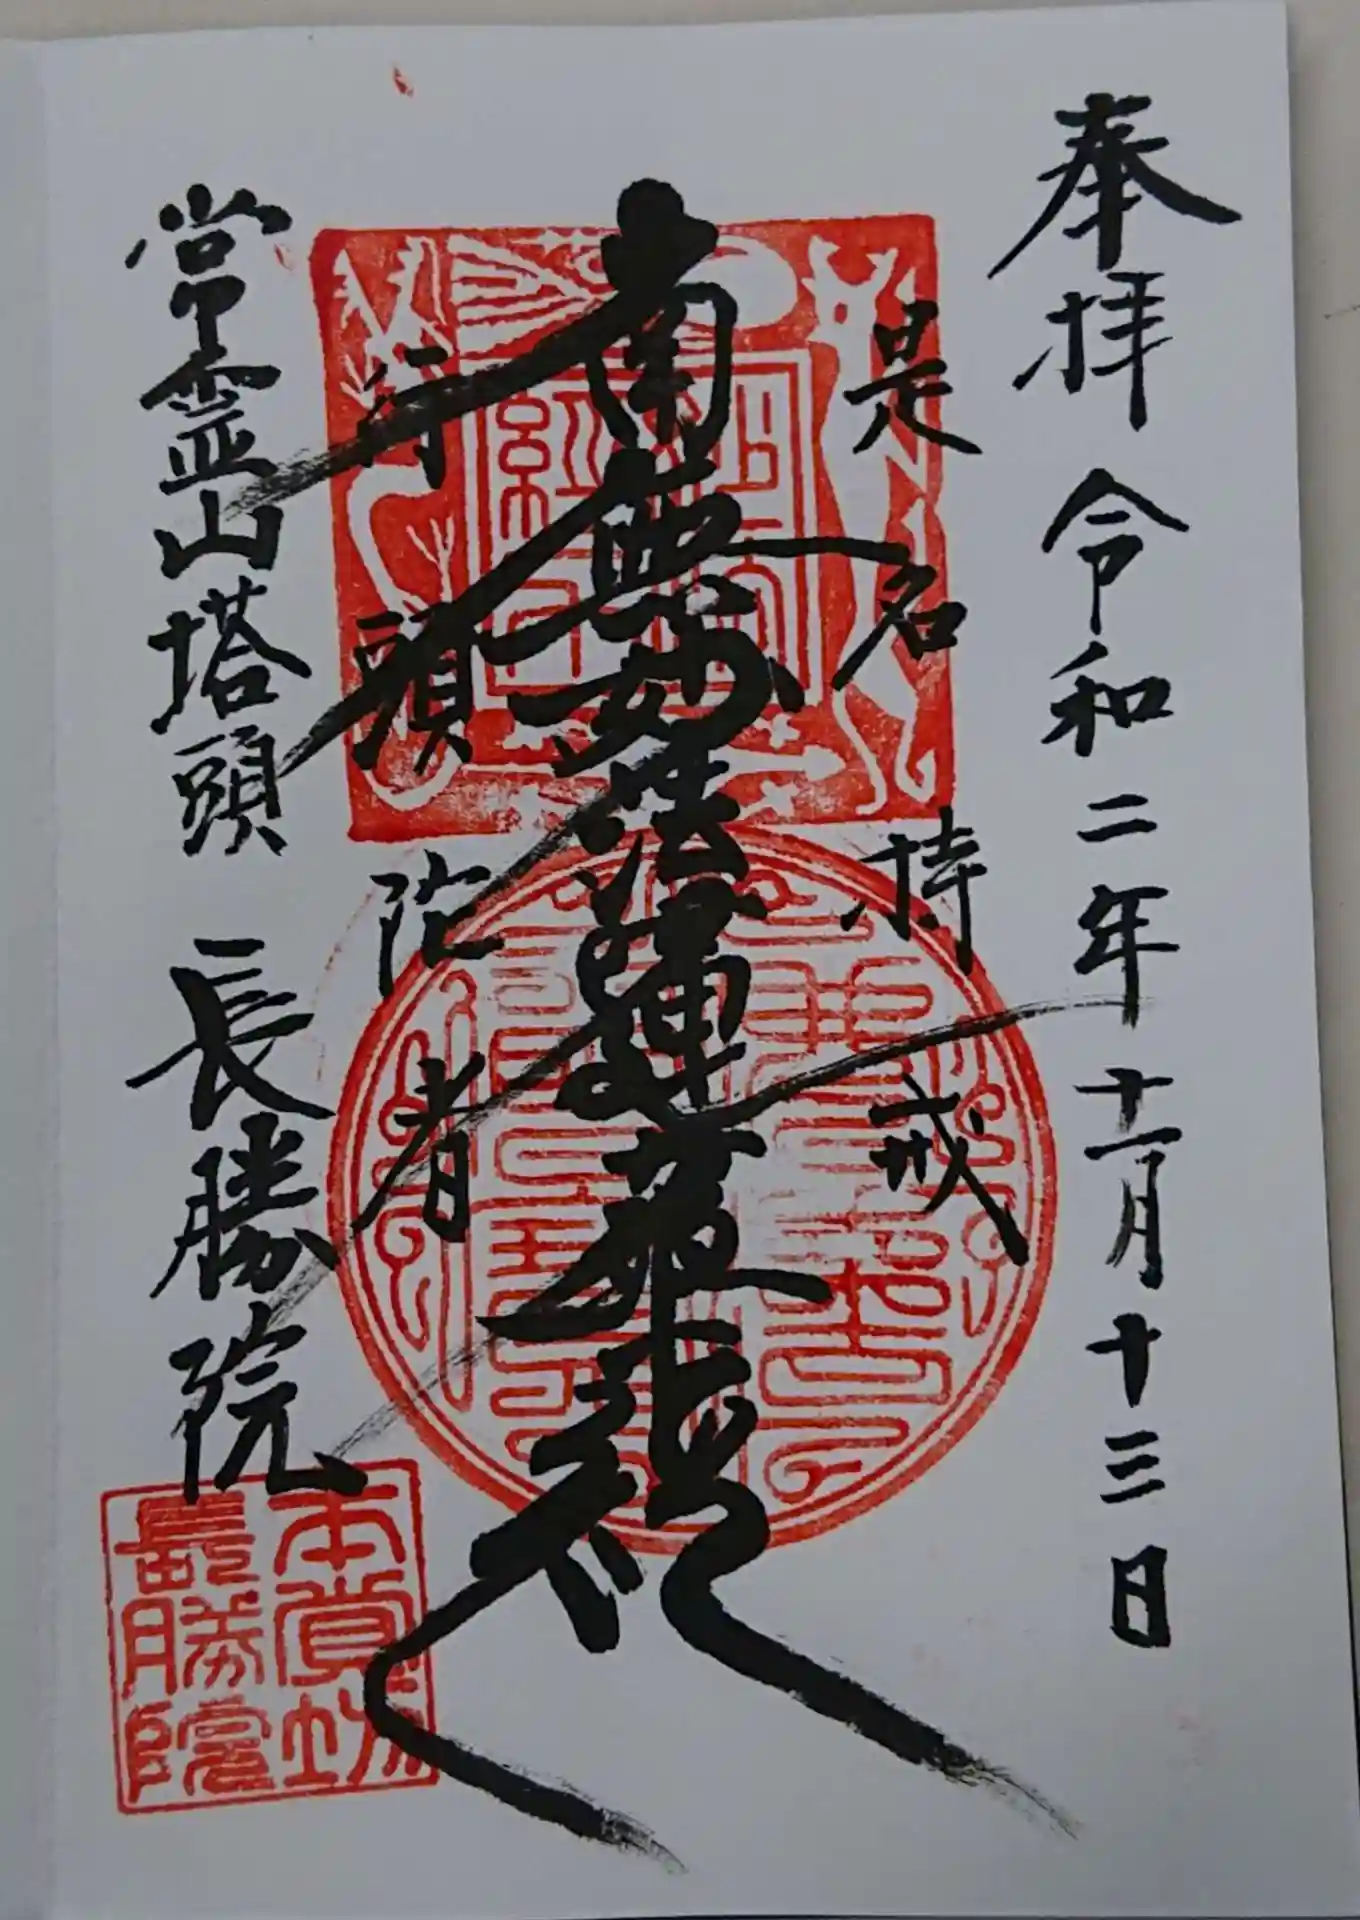 奉拝 令和二年十一月十三日
是名持戒
南無妙法蓮華経
行頭陀者
常霊山塔頭 長勝院
本覚坊
長勝院